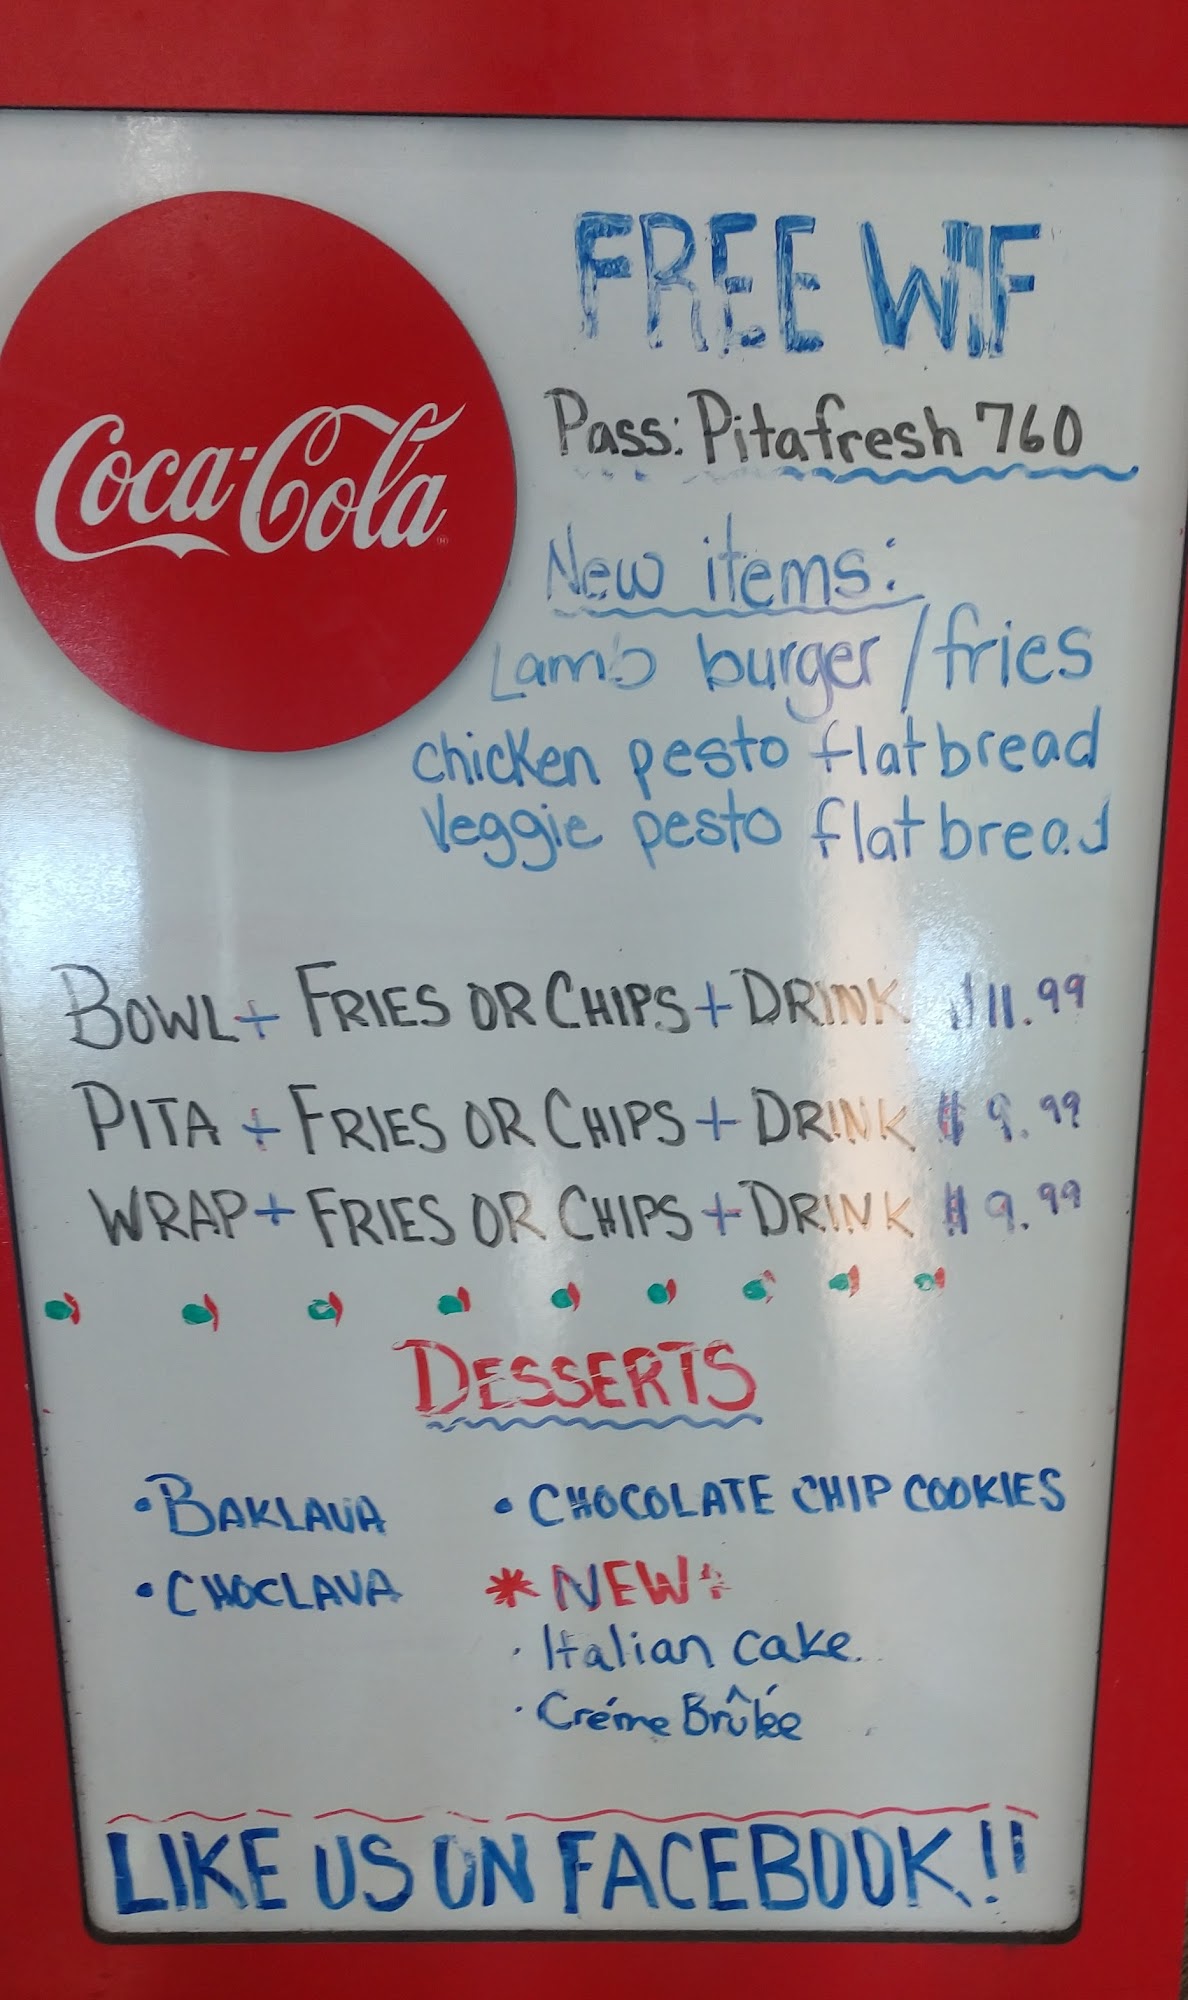 Coca-Cola
FREE WIF
Pass: Pitafresh 760
New items:
Lamb burger/fries
chicken pesto flatbread
Veggie pesto flatbread
BOWL + FRIES OR CHIPS + DRINK $11.99
PITA + FRIES OR CHIPS + DRINK $9.99
WRAP + FRIES OR CHIPS + DRINK $9.99
DESSERTS
• BAKLAVA
• CHOCLAVA
• CHOCOLATE CHIP COOKIES
* NEW:
· Italian cake
· Créme Brûlée
LIKE US ON FACEBOOK!!